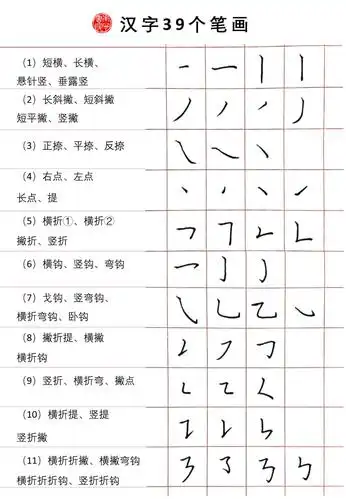 汉字39个笔画
（1）短横、长横、
悬针竖、垂露竖
（2）长斜撇、短斜撇
短平撇、竖撇
（3）正捺、平捺、反捺
（4）右点、左点
长点、提
（5）横折①、横折②
撇折、竖折
（6）横钩、竖钩、弯钩
（7）戈钩、竖弯钩、
横折弯钩、卧钩
（8）撇折提、横撇
横折钩
（9）竖折、横折弯、撇点
（10）横折提、竖提
竖折撇
（11）横折折撇、横撇弯钩
横折折折钩、竖折折钩